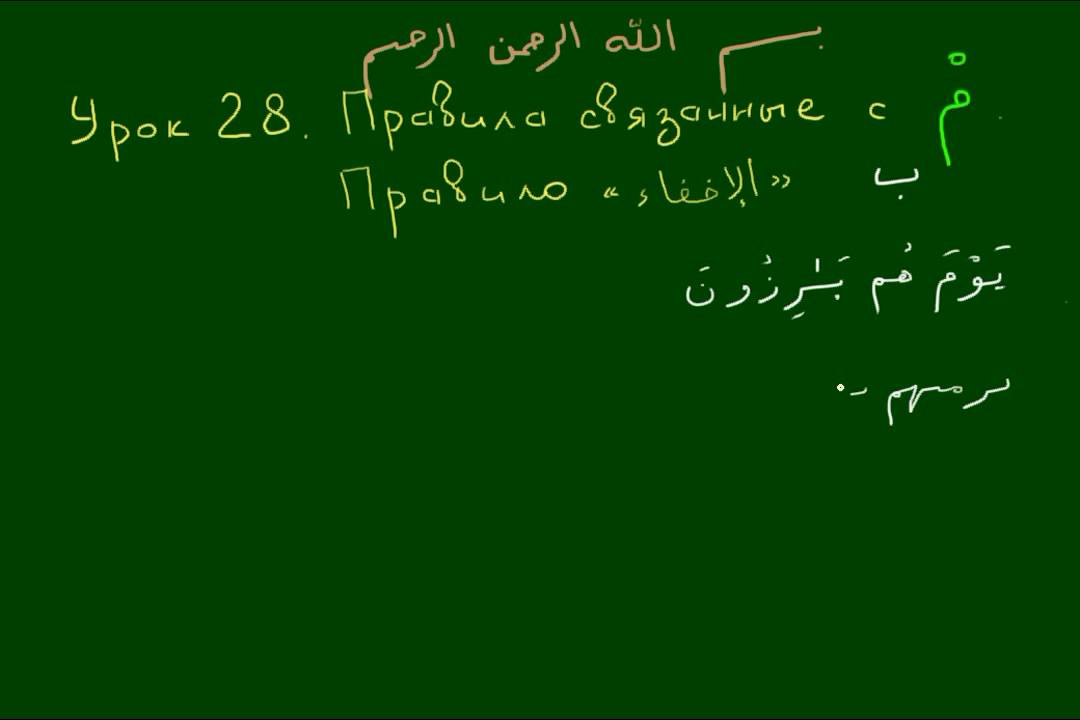 بسم الله الرحمن الرحيم
Урок 28. Правила связанные с مْ
Правило «الإخفاء» ب
يَوْمَ هُم بَـٰرِزُونَ